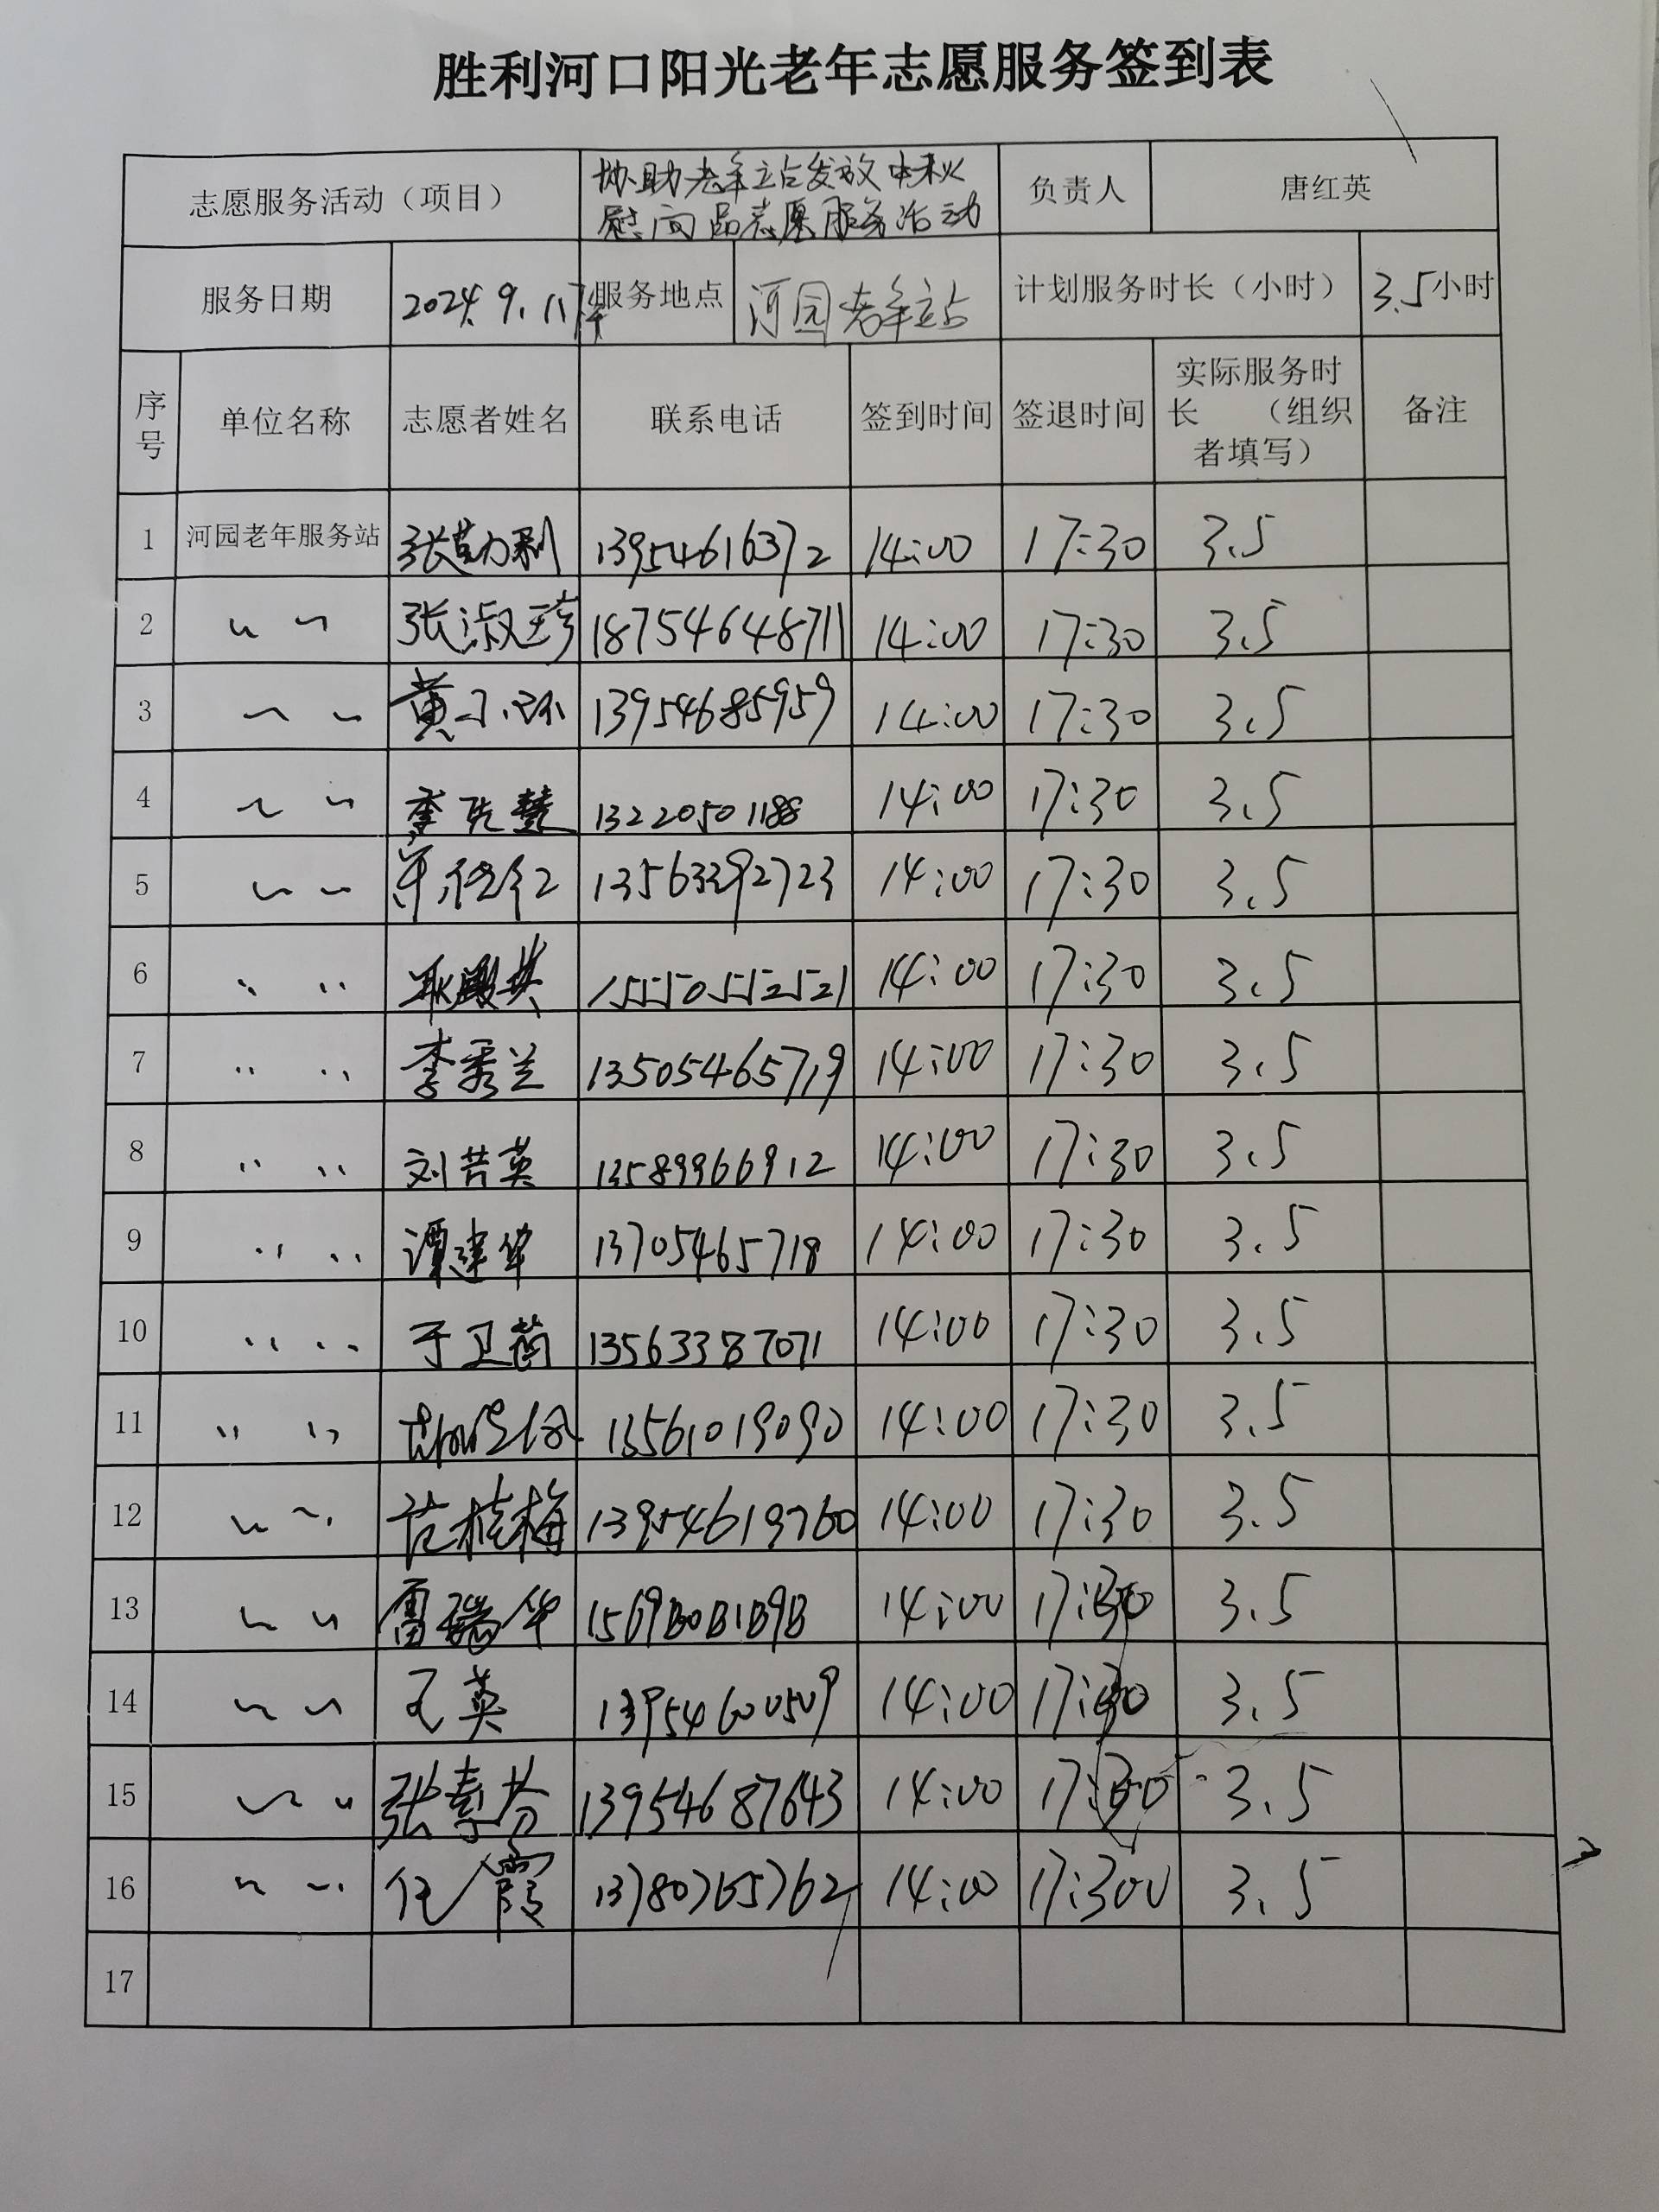 胜利河口阳光老年志愿服务签到表
志愿服务活动（项目） 协助老年站发放中秋 负责人 唐红英
慰问品志愿服务活动
服务日期 2024.9.11 服务地点 河园老年站 计划服务时长（小时） 3.5小时
序号 单位名称 志愿者姓名 联系电话 签到时间 签退时间 实际服务时长 （组织者填写） 备注
1 河园老年服务站 13954616372 14:00 17:30 3.5
2 〃 〃 18754648711 14:00 17:30 3.5
3 〃 〃 13954685959 14:00 17:30 3.5
4 〃 〃 13220501188 14:00 17:30 3.5
5 〃 〃 13563392723 14:00 17:30 3.5
6 〃 〃 15550552521 14:00 17:30 3.5
7 〃 〃 李秀兰 13505465719 14:00 17:30 3.5
8 〃 〃 13589966912 14:00 17:30 3.5
9 〃 〃 谭建华 13705465718 14:00 17:30 3.5
10 〃 〃 于卫茵 13563387071 14:00 17:30 3.5
11 〃 〃 13561019090 14:00 17:30 3.5
12 〃 〃 范桂梅 13954619760 14:00 17:30 3.5
13 〃 〃 雷瑞华 14:00 17:30 3.5
14 〃 〃 王英 13954600509 14:00 17:30 3.5
15 〃 〃 张素芬 13954687643 14:00 17:30 3.5
16 〃 〃 任霞 13780765762 14:00 17:300 3.5
17